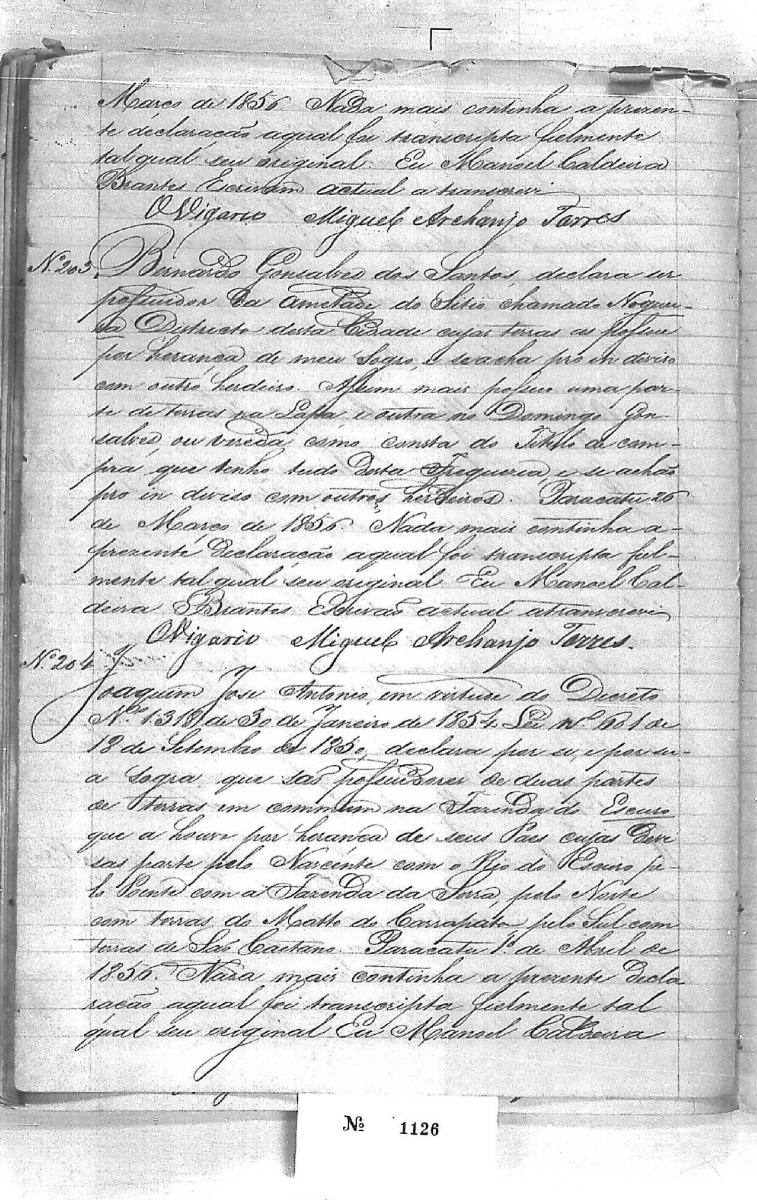 Março de 1856 Nada mais continha a prezen-
te declaração aqual foi transcripta fielmente
tal qual seu original. Eu Manoel Caldeira
Brantes Escrivam actual a transcrevi
O Vigario Miguel Archanjo Torres
Nº 203 Bernardo Gonsalves dos Santos, declara ser
possuidor da ametade do Sitio chamado Noguei-
ra Districto desta Cidade cujas terras as possue
por herança de meu Sogro, e se acha pro in diviso
com outro herdeiro. Alem mais possuo uma par-
te de terras na Lapa e outra no Domingo Gon-
salves, ou vereda como consta do Titulo de com-
pra, que tenho tudo desta Freguezia, e se achão
pro in diviso com outros herdeiros. Paracatu 26
de Março de 1856. Nada mais continha a-
prezente declaração aqual foi transcripta fiel-
mente tal qual seu original Eu Manoel Cal-
deira Brantes Escrivão actual atranscrevi
O Vigario Miguel Archanjo Torres.
Nº 204
Joaquim Jose Antonio, em virtude do Decreto
Nº 1318 de 30 de Janeiro de 1854 Lei nº 601 de
18 de Setembro de 1850, declara por si, e por su-
a Sogra, que são possuidores de duas partes
de terras em commum na Fazenda do Escuro
que a houve por herança de seus Paes cujas Devi
sas parte pelo Narcente com o Rio do Escuro pe-
lo Poente com a Fazenda da Serra, pelo Norte
com terras do Matto do Carrapato, pelo Sul com
terras de São Caetano. Paracatu 1º de Abril de
1856. Nada mais continha a prezente decla
ração aqual foi transcripta fielmente tal
qual seu original Eu Manoel Caldeira
Nº 1126